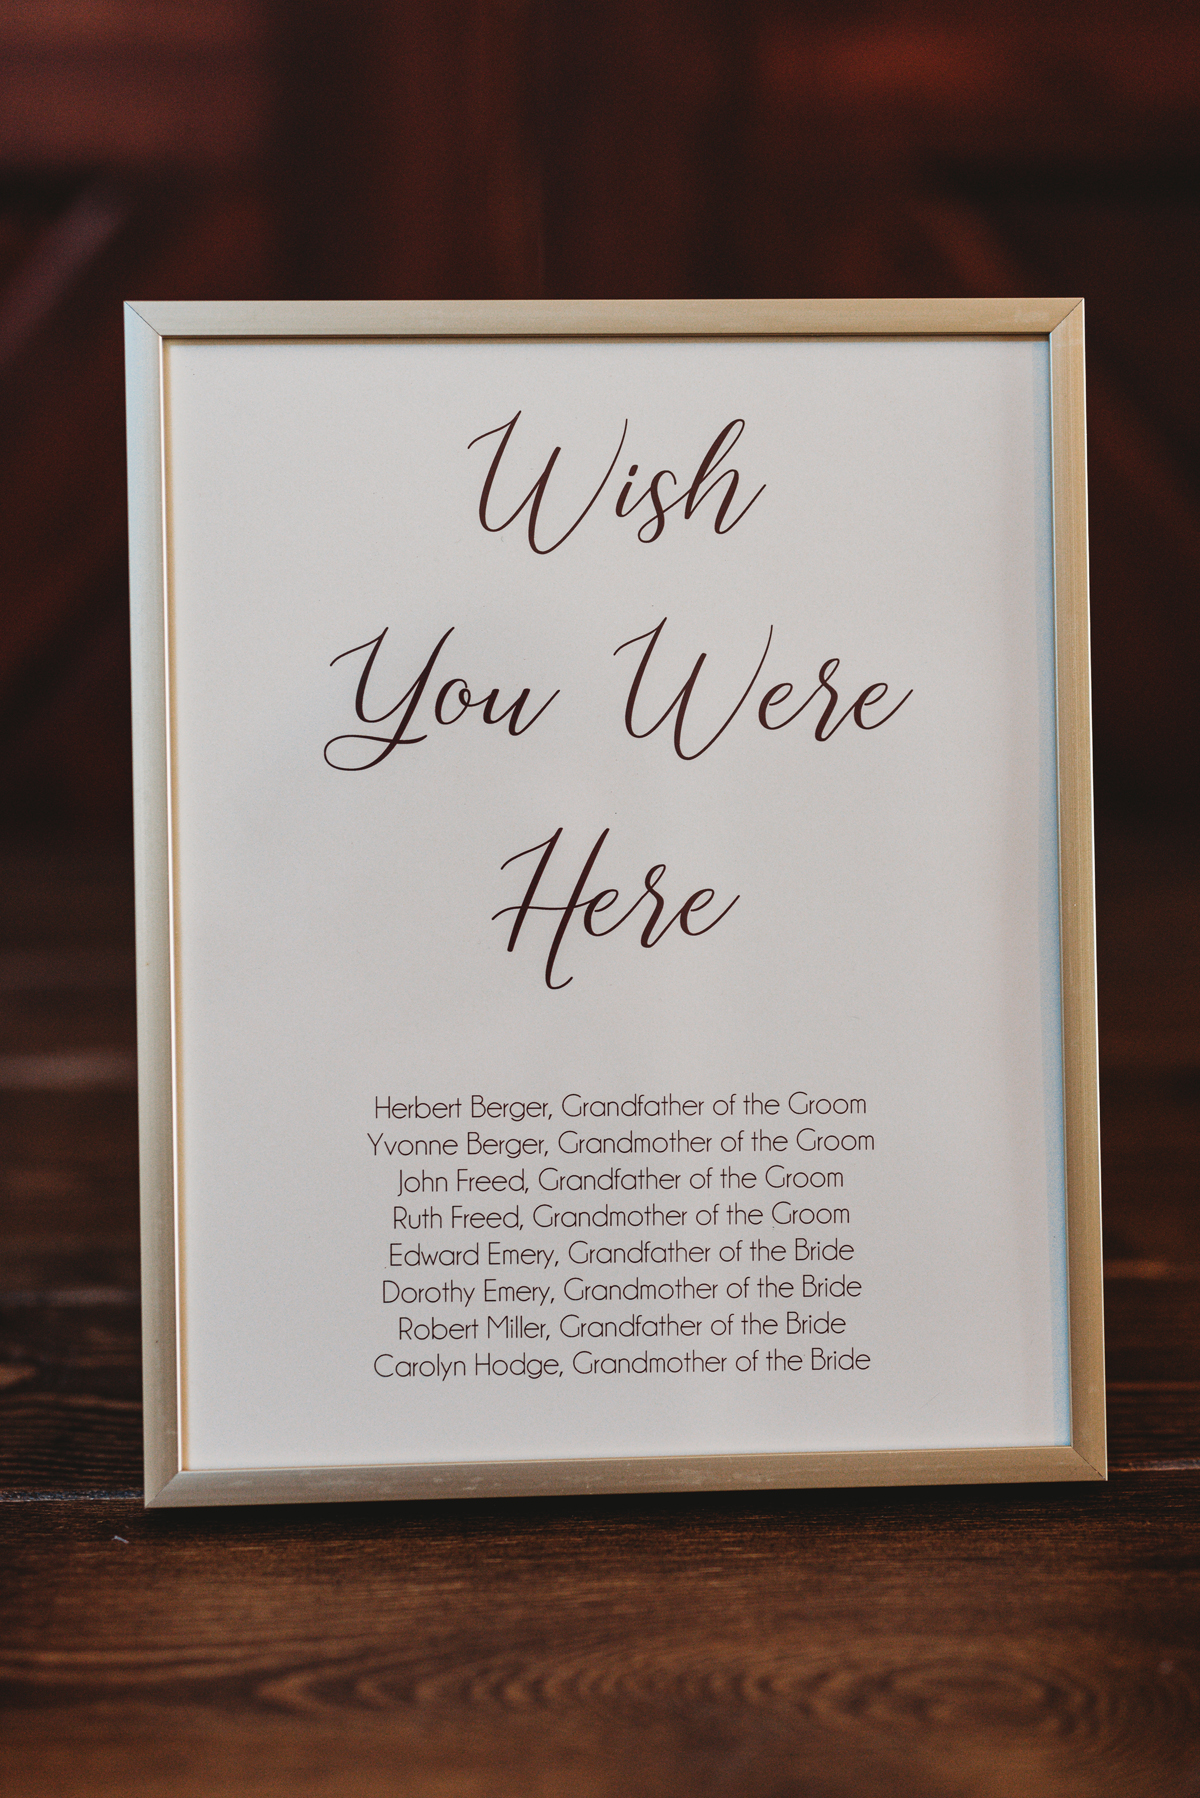 Wish
You Were
Here
Herbert Berger, Grandfather of the Groom
Yvonne Berger, Grandmother of the Groom
John Freed, Grandfather of the Groom
Ruth Freed, Grandmother of the Groom
Edward Emery, Grandfather of the Bride
Dorothy Emery, Grandmother of the Bride
Robert Miller, Grandfather of the Bride
Carolyn Hodge, Grandmother of the Bride